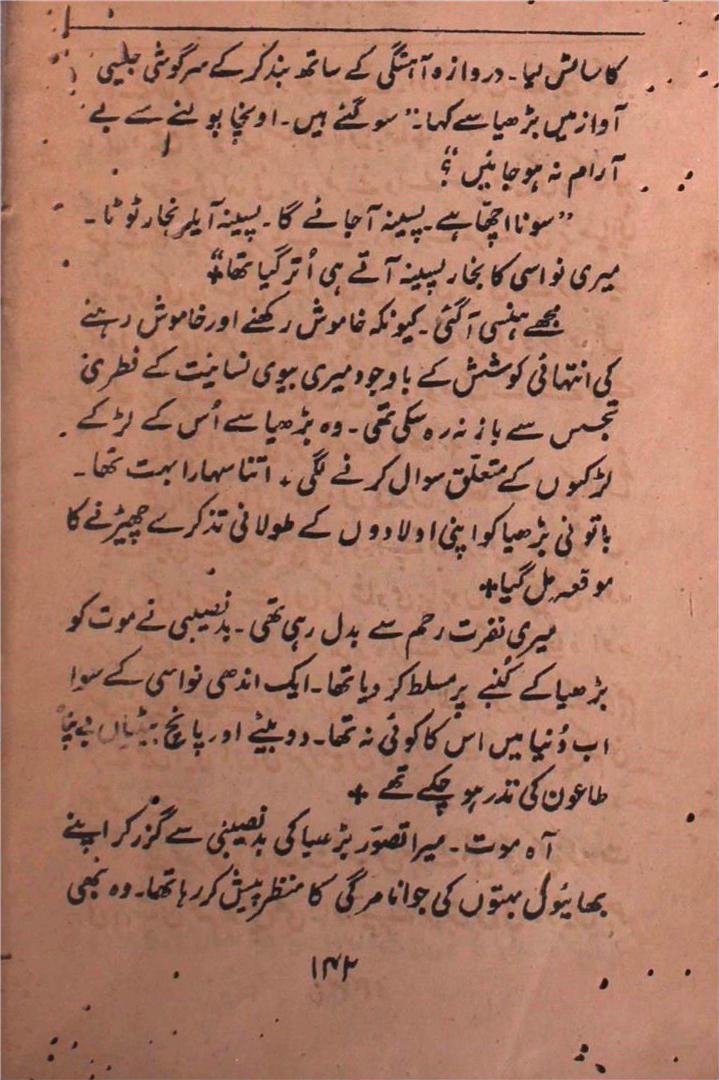 کا سانس لیا۔ دروازہ آہستگی کے ساتھ بند کر کے سرگوشی جیسی
آواز میں بڑھیا سے کہا۔ "سو گئے ہیں۔ اونچا بولنے سے بے
آرام نہ ہو جائیں"؟
"سونا اچھا ہے۔ پسینہ آ جائے گا۔ پسینہ آیا بخار ٹوٹا۔
میری نواسی کا بخار پسینہ آتے ہی اُتر گیا تھا"+
مجھے ہنسی آ گئی۔ کیونکہ خاموش رکھنے اور خاموش رہنے
کی انتہائی کوشش کے باوجود میری بیوی نسانیت کے فطری
تجسس سے باز نہ رہ سکی تھی۔ وہ بڑھیا سے اُس کے لڑکے
لڑکیوں کے متعلق سوال کرنے لگی + اتنا سہارا بہت تھا۔
باتونی بڑھیا کو اپنی اولادوں کے طولانی تذکرے چھیڑنے کا
موقعہ مِل گیا+
میری نفرت رحم سے بدل رہی تھی۔ بدنصیبی نے موت کو
بڑھیا کے کُنبے پر مسلط کر دیا تھا۔ ایک اندھی نواسی کے سوا
اب دُنیا میں اس کا کوئی نہ تھا۔ دو بیٹے اور پانچ بیٹیاں
طاعون کی نذر ہو چکے تھے +
آہ موت۔ میرا تصوّر بڑھیا کی بدنصیبی سے گزر کر اپنے
بھائیوں بہنوں کی جوانا مرگی کا منظر پیش کر رہا تھا۔ وہ بھی
۱۴۲